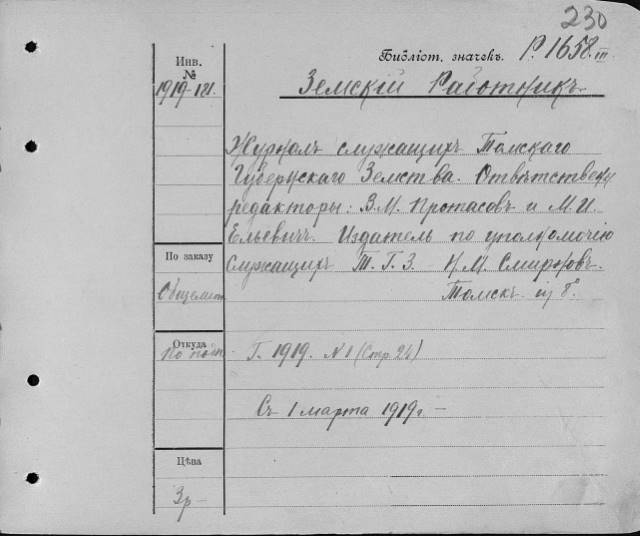 230
Библіот. значекъ. Р. 1658 III
Инв.
№
1919-121.
Земскій Работникъ
Журналъ служащихъ Томскаго
Губернскаго Земства. Отвѣтственн
редакторы: В.М. Протасовъ и М.И.
Ельевичъ. Издатель по уполномочію
служащихъ Т.Г.З. Н.М. Смирновъ.
Томскъ. in 8°
По заказу
Общемъ
Откуда
По подп.
Г. 1919. № 1 (Стр. 24)
Съ 1 марта 1919 г. —
Цѣва
3 р —